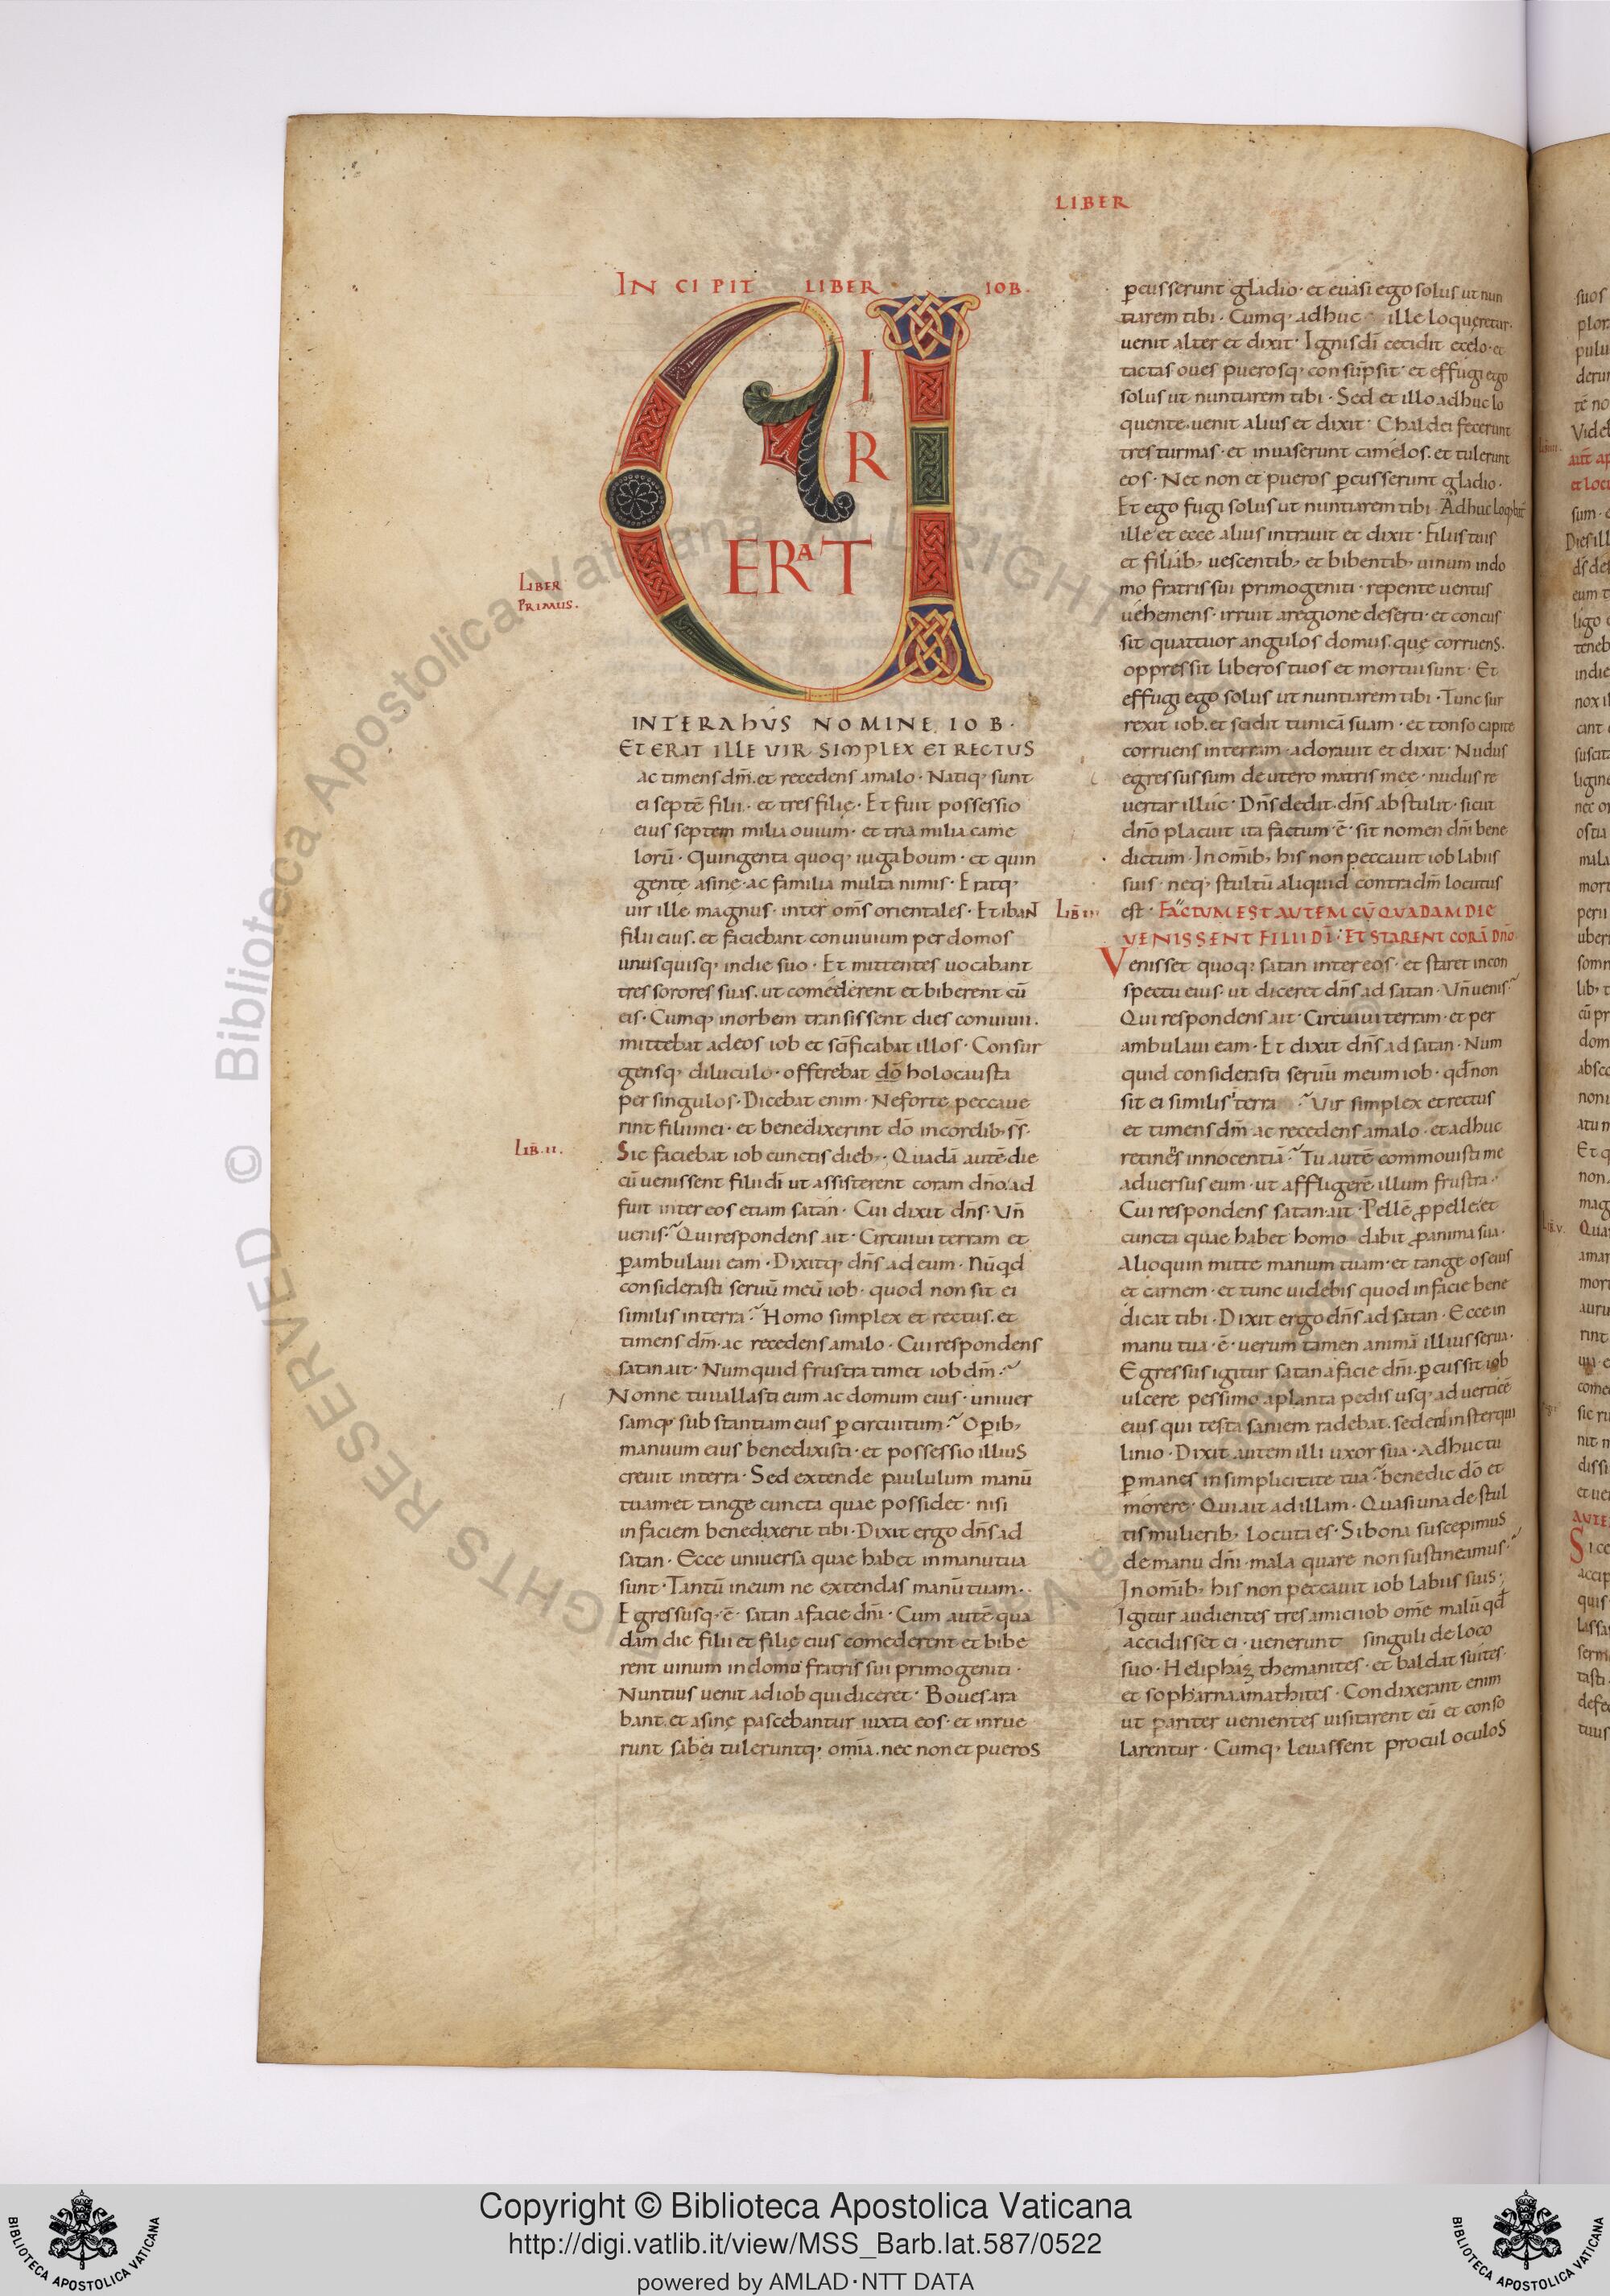 LIBER
INCIPIT LIBER IOB.
VIR
ERAT
LIBER
PRIMUS.
INTERRAHUS NOMINE IOB.
ET ERAT ILLE VIR SIMPLEX ET RECTUS
ac timens dm̄. et recedens amalo. Natiq; sunt
ei septē filii. et tres filię. Et fuit possessio
eius septem milia ouium. et tria milia came
lorū. Quingenta quoq; iuga boum. et quin
gente asinę. ac familia multa nimis. Eratq;
uir ille magnus. inter om̄s orientales. Et ibant
filii eius. et faciebant conuiuium per domos
unusquisq; indie suo. Et mittentes uocabant
tres sorores suas. ut comederent et biberent cū
eis. Cumq; inorbem transissent dies conuiuii.
mittebat adeos iob et sc̄ificabat illos. Consur
gensq; diluculo. offerebat dō holocausta
per singulos. Dicebat enim. Neforte peccaue
rint filiimei. et benedixerint dō incordib; ss̄.
LIB. II.
Sic faciebat iob cunctis dieb;. Quadā autē die
cū uenissent filii dī ut assisterent coram dn̄o. ad
fuit inter eos etiam satan. Cui dixit dn̄s. Vn̄
uenis? Qui respondens ait. Circuiui terram et
p̄ambulaui eam. Dixitq; dn̄s ad eum. Nūqd
considerasti seruū meū iob. quod non sit ei
similis interra? Homo simplex et rectus. et
timens dm̄. ac recedens amalo. Cui respondens
satan ait. Numquid frustra timet iob dm̄?
Nonne tu uallasti eum ac domum eius. uniuer
samq; substantiam eius p̄ circuitum? Op̄ib;
manuum eius benedixisti. et possessio illius
creuit interra. Sed extende paululum manū
tuam. et tange cuncta quae possidet. nisi
in faciem benedixerit tibi. Dixit ergo dn̄s ad
satan. Ecce uniuersa quae habet inmanu tua
sunt. Tantū ineum ne extendas manū tuam.
Egressusq; ē satan afacie dn̄i. Cum autē qua
dam die filii et filię eius comederent et bibe
rent uinum indomo fratris sui primogeniti.
Nuntius uenit ad iob qui diceret. Boues ara
bant. et asinę pascebantur iuxta eos. et inrue
runt sabei tuleruntq; om̄ia. nec non et pueros
p̄cusserunt gladio. et euasi ego solus ut nun
tiarem tibi. Cumq; adhuc ille loqueretur.
uenit alter et dixit. Ignis dī cecidit ecęlo. et
tactas oues puerosq; consūpsit. et effugi ego
solus ut nuntiarem tibi. Sed et illo adhuc lo
quente. uenit alius et dixit. Chaldei fecerunt
tres turmas. et inuaserunt camelos. et tulerunt
eos. Nec non et pueros p̄cusserunt gladio.
Et ego fugi solus ut nuntiarem tibi. Adhuc loq̄bat̄
ille et ecce alius intrauit et dixit. Filiis tuis
et filiab; uescentib; et bibentib; uinum indo
mo fratris sui primogeniti. repente uentus
uehemens. irruit aregione deserti. et concus
sit quattuor angulos domus. quę corruens.
oppressit liberos tuos et mortui sunt. Et
effugi ego solus ut nuntiarem tibi. Tunc sur
rexit iob. et scidit tunicā suam. et tonso capite
corruens interram. adorauit et dixit. Nudus
egressus sum de utero matris mee. nudus re
uertar illuc. Dn̄s dedit. dn̄s abstulit. sicut
dn̄o placuit ita factum ē. sit nomen dn̄i bene
dictum. In om̄ib; his non peccauit iob labiis
suis. neq; stultū aliquid contra dm̄ locutus
LIB̄ III.
est. FACTUM EST AUTEM CŪ QUADAM DIE
VENISSENT FILII DĪ. ET STARENT CORĀ DN̄O
Venisset quoq; satan inter eos. et staret incon
spectu eius. ut diceret dn̄s ad satan. Vn̄ uenis?
Qui respondens ait. Circuiui terram. et per
ambulaui eam. Et dixit dn̄s ad satan. Num
quid considerasti seruū meum iob. qd̄ non
sit ei similis terra? Vir simplex et rectus
et timens dm̄ ac recedens amalo. et adhuc
retinens innocentiā? Tu autē commouisti me
aduersus eum. ut affligerē illum frustra.
Cui respondens satan. ait. Pellē p̄pelle. et
cuncta quae habet homo dabit p̄ anima sua.
Alioquin mitte manum tuam. et tange os eius
et carnem. et tunc uidebis quod infacie bene
dicat tibi. Dixit ergo dn̄s ad satan. Ecce in
manu tua ē. uerum tamen animā illius serua.
Egressus igitur satan afacie dn̄i. p̄cussit iob
ulcere pessimo aplanta pedis usq; ad uerticē
eius qui testa saniem radebat. sedens insterqui
linio. Dixit autem illi uxor sua. Adhuc tu
p̄manes insimplicitate tua? benedic dō et
morere. Qui ait ad illam. Quasi una de stul
tis mulierib; locuta es. Si bona suscepimus
de manu dn̄i. mala quare non sustineamus?
In om̄ib; his non peccauit iob labiis suis.
Igitur audientes tres amici iob om̄e malū qd̄
accidisset ei. uenerunt singuli de loco
suo. Heliphaz themanites. et baldat suites.
et sophar naamathites. Condixerant enim
ut pariter uenientes uisitarent eū et conso
larentur. Cumq; leuassent procul oculos
© Biblioteca Apostolica Vaticana ALL RIGHTS RESERVED
Copyright © Biblioteca Apostolica Vaticana
http://digi.vatlib.it/view/MSS_Barb.lat.587/0522
powered by AMLAD·NTT DATA
BIBLIOTECA APOSTOLICA VATICANA
BIBLIOTECA APOSTOLICA VATICANA